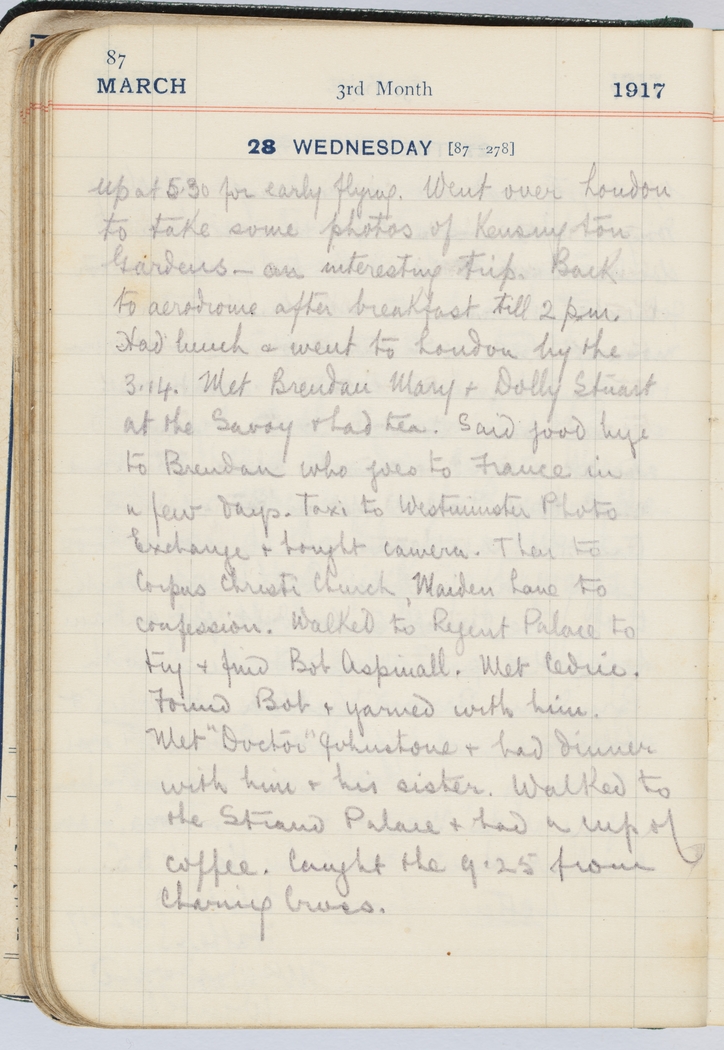 87
MARCH 3rd Month 1917
28 WEDNESDAY [87-278]
up at 5.30 for early flying. Went over London
to take some photos of Kensington
Gardens – an interesting trip. Back
to aerodrome after breakfast till 2 p.m.
Had lunch & went to London by the
3.14. Met Brendan Mary + Dolly Stuart
at the Savoy + had tea. Said good bye
to Brendan who goes to France in
a few days. Taxi to Westminster Photo
Exchange + bought camera. Then to
Corpus Christi Church, Maiden Lane to
confession. Walked to Regent Palace to
try + find Bob Aspinall. Met Cedric.
Found Bob + yarned with him.
Met "Doctor" Johnstone + had dinner
with him + his sister. Walked to
the Strand Palace + had a cup of
coffee. Caught the 9.25 from
Charing Cross.